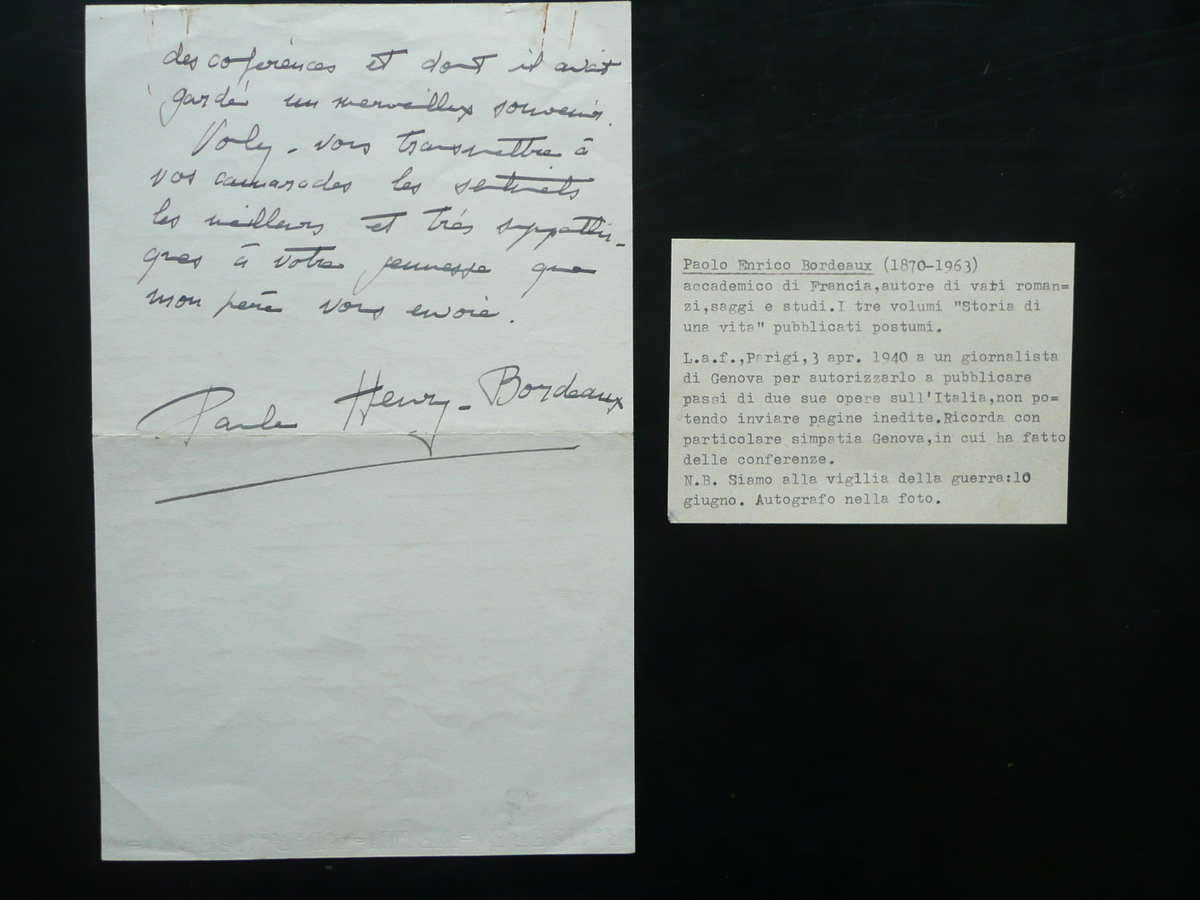 des coférences et dont il avait
gardé un merveilleux souvenir.
vous transmettre à
vos camarades les sentiments
les meilleurs et très sympathi-
ques à votre jeunesse que
mon père vous envoie.
Paule Henry-Bordeaux
Paolo Enrico Bordeaux (1870-1963)
accademico di Francia,autore di vari roman=
zi,saggi e studi.I tre volumi "Storia di
una vita" pubblicati postumi.
L.a.f.,Parigi,3 apr. 1940 a un giornalista
di Genova per autorizzarlo a pubblicare
passi di due sue opere sull'Italia,non po=
tendo inviare pagine inedite.Ricorda con
particolare simpatia Genova,in cui ha fatto
delle conferenze.
N.B. Siamo alla vigilia della guerra:10
giugno. Autografo nella foto.